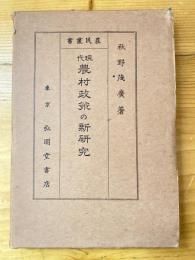 農民叢書
秋野茂廣著
現代農村政策の新研究
東京 弘文堂書店